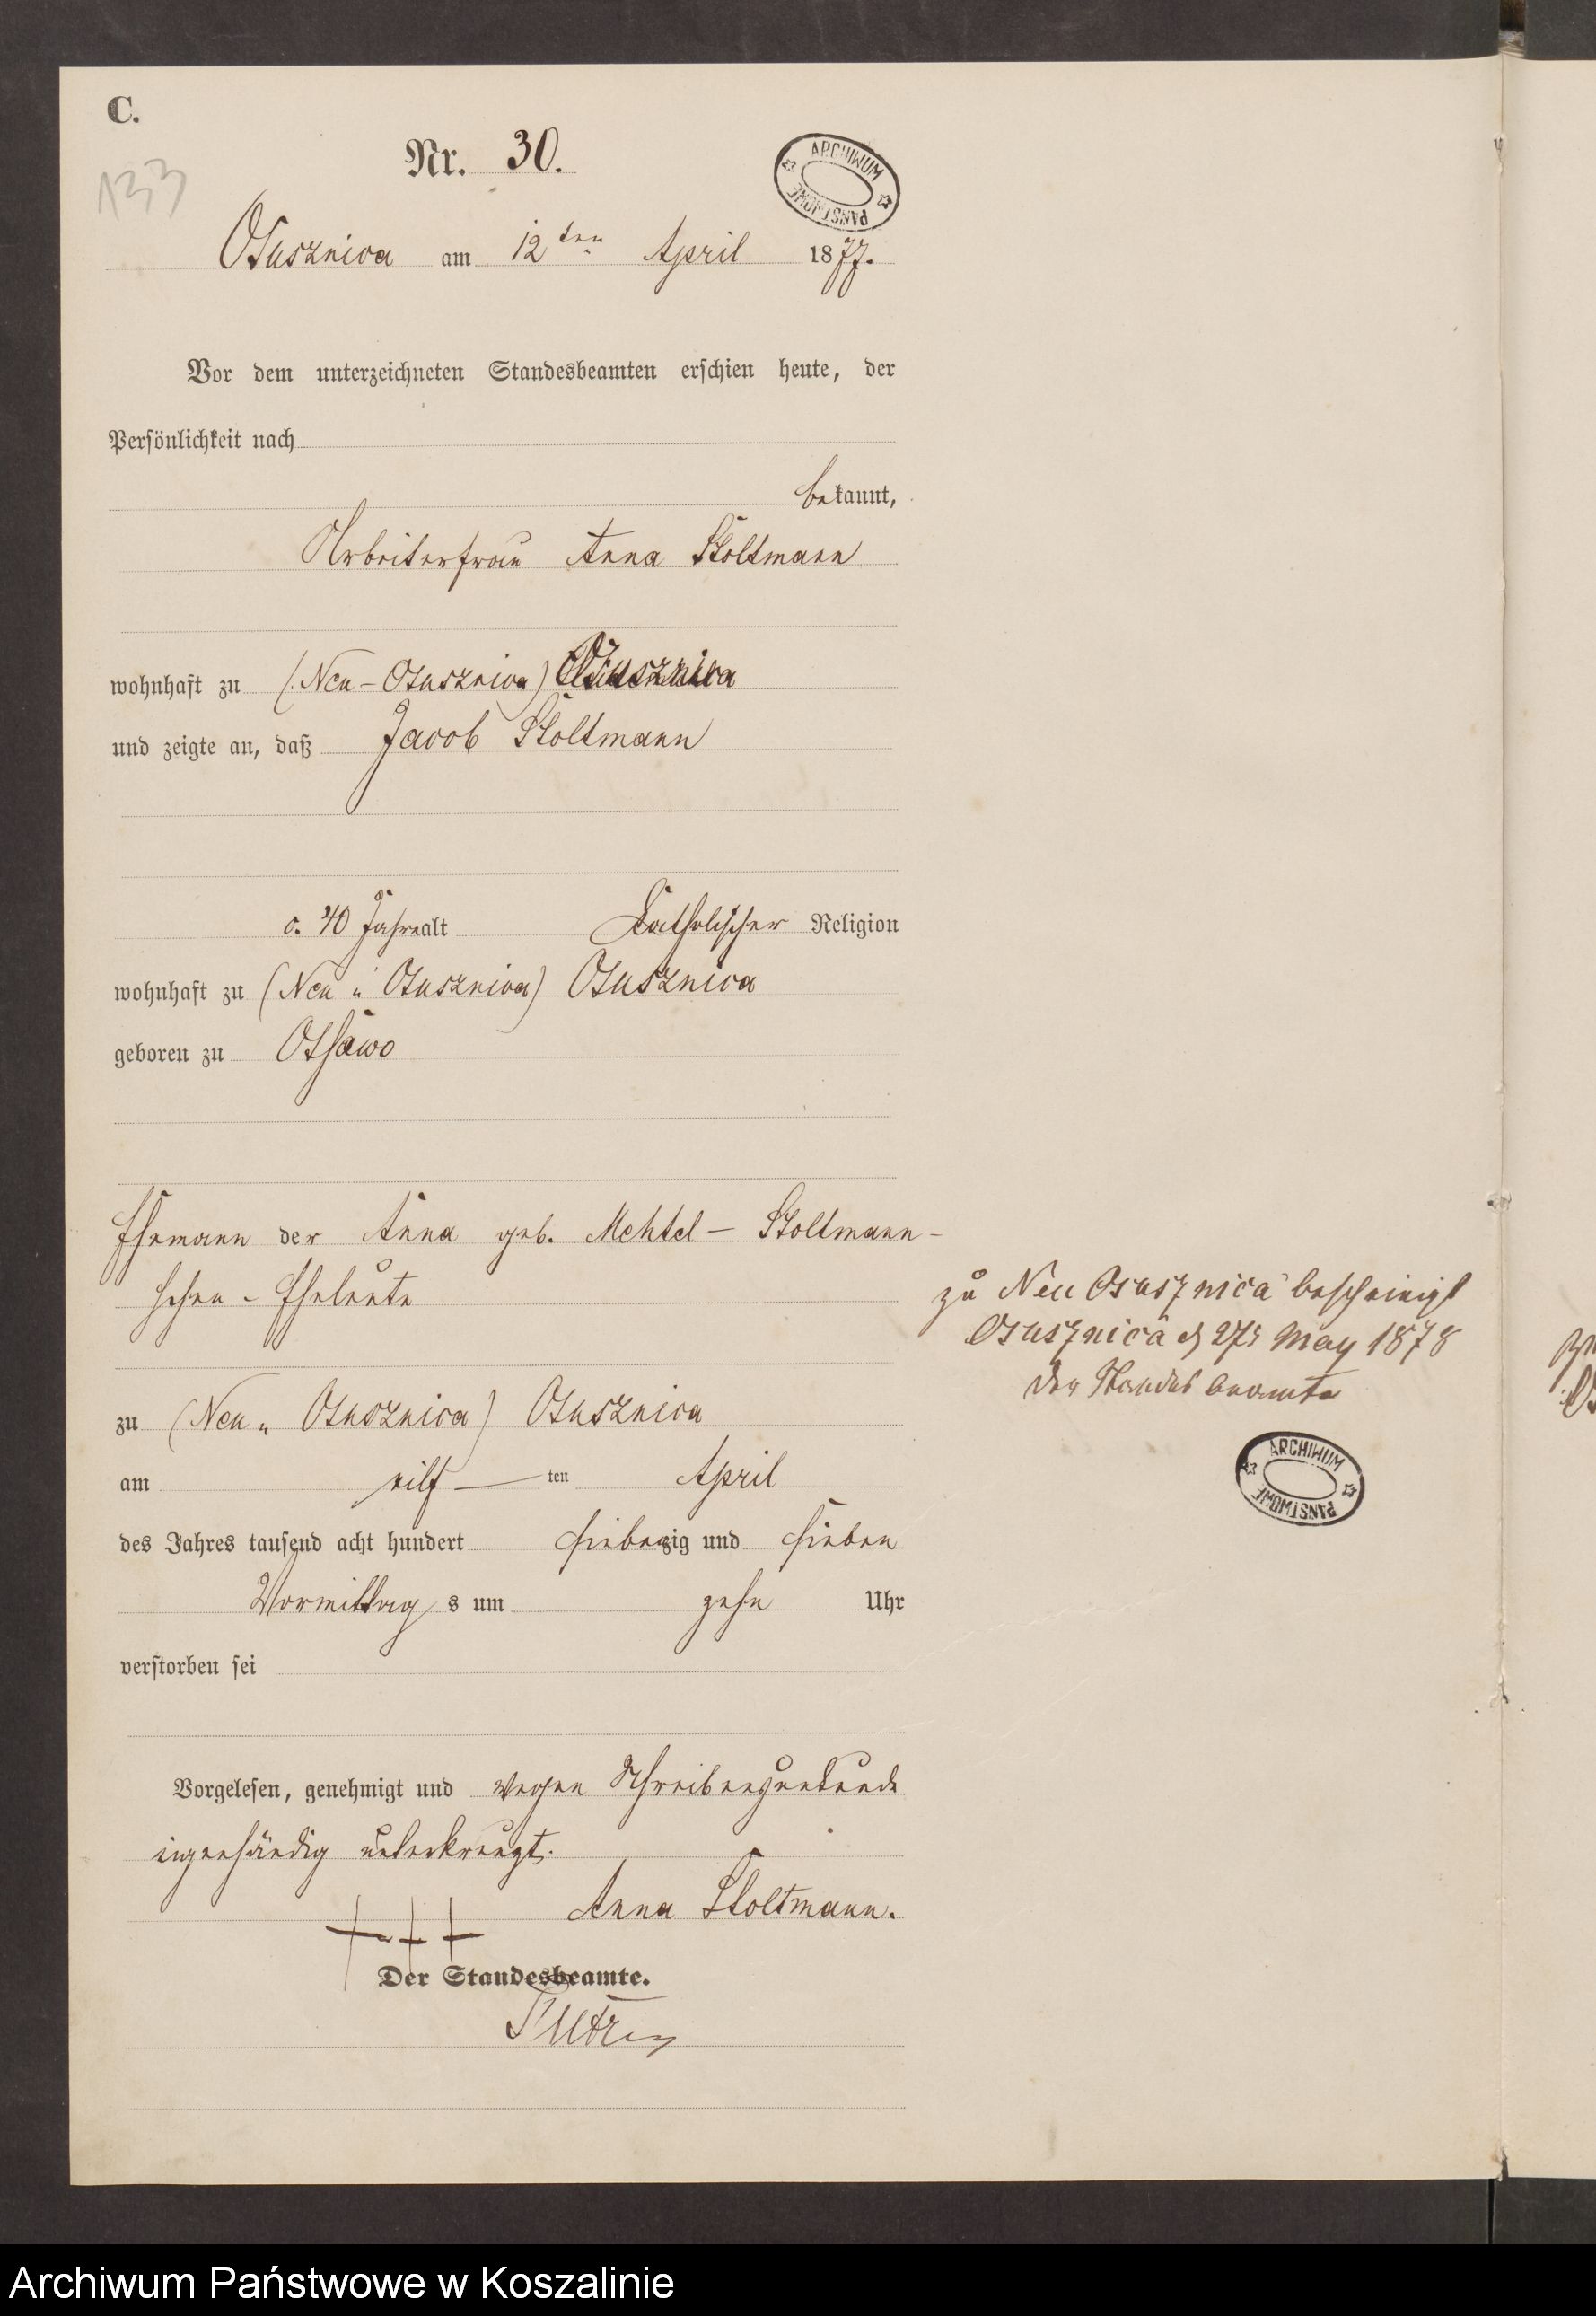 C.
133
Nr. 30.
ARCHIWUM PAŃSTWOWE
Osusznica am 12ten April 1877.
Vor dem unterzeichneten Standesbeamten erschien heute, der
Persönlichkeit nach
bekannt,
Arbeiterfrau Anna Stoltmann
wohnhaft zu (Neu-Osusznica) Osusznica
und zeigte an, daß Jacob Stoltmann
40 Jahre alt Catholischer Religion
wohnhaft zu (Neu „ Osusznica) Osusznica
geboren zu
Ehemann der Anna geb. Stoltmann-
schen-Eheleute
zu (Neu „ Osusznica) Osusznica
am eilf — ten April
des Jahres tausend acht hundert siebenzig und sieben
Vormittags um zehn Uhr
verstorben sei
Vorgelesen, genehmigt und wegen Schreibensunkunde
unterkreuzt.
+++ Anna Stoltmann.
Der Standesbeamte.
zu Neu Osusznica bescheinigt
Osusznica d 27t May 1878
der Standesbeamte
ARCHIWUM PAŃSTWOWE
Archiwum Państwowe w Koszalinie